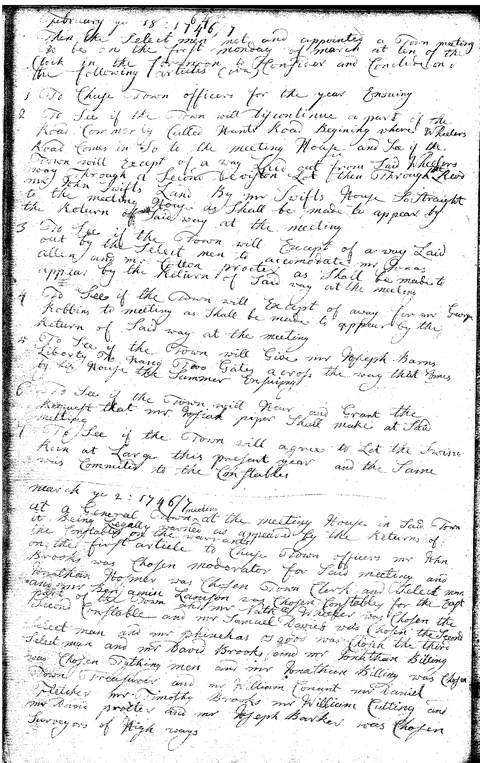 February ye 18: 1746/7
Then the Select men met and appointed a Town meeting
to be on the first monday of march at ten of the
Clock in the forenoon to Consider and Conclude on
the following articles (viz)
1 To Chuse Town officers for the year Ensuing
2 To See if the Town will Discontinue a part of the
Road Commonly Called Hunts Road Begining where Wheelers
Road Comes in So to the meeting House and See if the
Town will Except of a way Laid out from Said Wheelers
way Through a Second Division Lot then Through
mr John Swifts Land By mr Swifts House So Straight
to the meeting House as Shall be made to appear by
the Return of Said way at the meeting
3 To See if the Town will Except of a way Laid
out by the Select men to accomodate mr Jonas
allen and mr procter as Shall be made to
appear by the Return of Said way at the meeting
4 To See if the Town will Except of a way for mr George
Robbins to meeting as Shall be made to appear by the
Return of Said way at the meeting
5 To See if the Town will Give mr Joseph Barns
Liberty To Hang Two Gates across the way that Comes
by his House the Summer Ensuing
6 To See if the Town will Hear and Grant the
Request that mr Josiah piper Shall make at Said
meeting
7 To See if the Town will agree to Let the Swine
Run at Large this present year and the Same
was Committed to the Constables
march ye 2: 1746/7
at a General Town meeting at the meeting House in Said Town
it Being Legally warned as appeared by the Returns of
the Constables on the warrants
on the first article to Chuse Town officers mr John
Brooks was Chosen moderator for Said meeting and
Jonathan Hosmer was Chosen Town Clerk and Select man
and mr Benjamin Lamson was Chosen Constable for the East
part of the Town and mr Nathll Wheeler was Chosen the
Second Constable and mr Samuel Davis was Chosen the Second
Select man and mr phinehas osgood was Chosen the third
Select man and mr David Brooks and mr Jonathan Billing
was Chosen Tything men and mr Jonathan Billing was Chosen
Town Treasurer and mr William Conant mr Daniel
Fletcher mr Timothy Brooks mr William Cutting and
mr David procter and mr Joseph Barker was Chosen
Surveyors of High ways